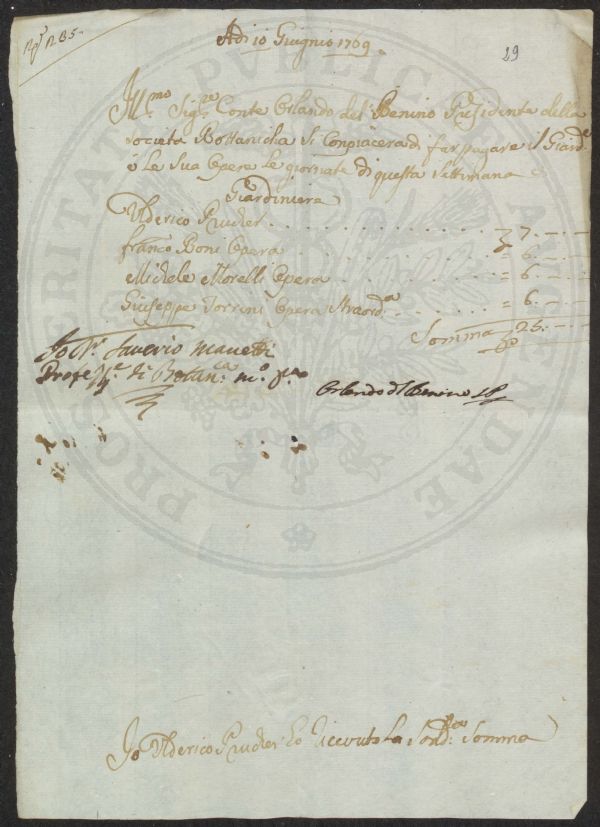 Adì 10 Giugnio 1769
29
Ill.mo Sig.re Conte Orlando del Benino Presidente della
Società Bottanicha Si Conpiacerà di far pagare il Giard.e
è le Sua Opere le giornate di questa Settimana
Giardiniere
Ulderico Prucher . . . . . . . . . . . . . 7. — —
franco Boni Opera . . . . . . . . . . . = 6. — —
Michele Morelli Opera . . . . . . . . . = 6. — —
Giuseppe Torrini Opera Straord.a . . = 6. — —
Somma 25. — —
Io Saverio Manetti
Profe di Botan.ca m.o p.a
Orlando del Benino
Io Ulderico Prucher ho riceuto la Sud.a Somma
PROSPERITATI PUBLICAE AUGENDAE